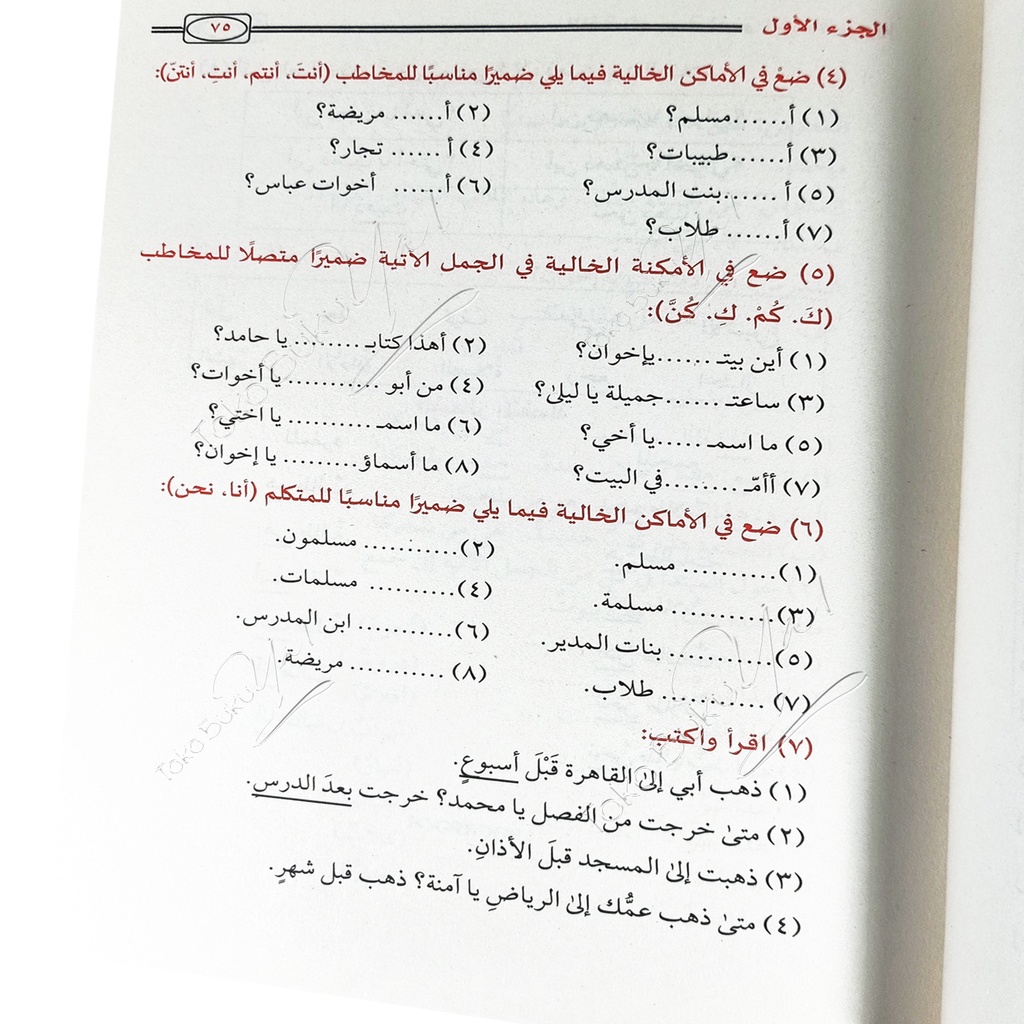 الجزء الأول ٧٥
(٤) ضعْ في الأماكن الخالية فيما يلي ضميرًا مناسبًا للمخاطب (أنتَ، أنتم، أنتِ، أنتنّ):
(١) أ......مسلم؟ (٢) أ...... مريضة؟
(٣) أ......طبيبات؟ (٤) أ ...... تجار؟
(٥) أ ......بنت المدرس؟ (٦) أ...... أخوات عباس؟
(٧) أ...... طلاب؟
(٥) ضع في الأمكنة الخالية في الجمل الآتية ضميرًا متصلًا للمخاطب
(كَ. كُمْ. كِ. كُنَّ):
(١) أين بيتـ ......يإخوان؟ (٢) أهذا كتابـ ........ يا حامد؟
(٣) ساعتـ ......جميلة يا ليلىٰ؟ (٤) من أبو .......... يا أخوات؟
(٥) ما اسمـ .....يا أخي؟ (٦) ما اسمـ .......... يا اختي؟
(٧) أأمّـ ........في البيت؟ (٨) ما أسماؤ......... يا إخوان؟
(٦) ضع في الأماكن الخالية فيما يلي ضميرًا مناسبًا للمتكلم (أنا، نحن):
(١)........... مسلم. (٢)........... مسلمون.
(٣)........... مسلمة. (٤).......... مسلمات.
(٥)........... بنات المدير. (٦)........... ابن المدرس.
(٧) ........... طلاب. (٨) .......... مريضة.
(٧) اقرأ واكتب:
(١) ذهب أبي إلىٰ القاهرة قَبْلَ أسبوعٍ.
(٢) متىٰ خرجت من الفصل يا محمد؟ خرجت بعدَ الدرس.
(٣) ذهبت إلىٰ المسجد قبلَ الأذانِ.
(٤) متىٰ ذهب عمُّك إلىٰ الرياضِ يا آمنة؟ ذهب قبل شهرٍ.
Toko Buku
Toko Buku
Toko Buku
Toko Buku